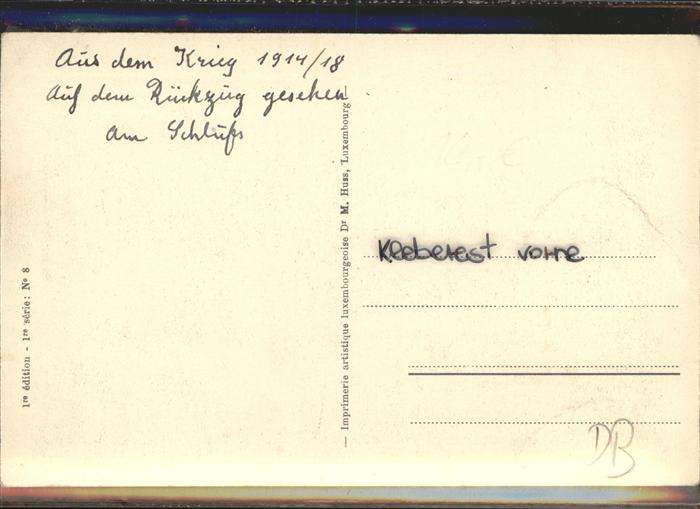 Aus dem Krieg 1914/18
Auf dem Rückzug gesehen
am Schluß
Kleberest vorne
1re édition - 1re série: No 8
— Imprimerie artistique luxembourgeoise Dr M. Huss, Luxembourg
DB